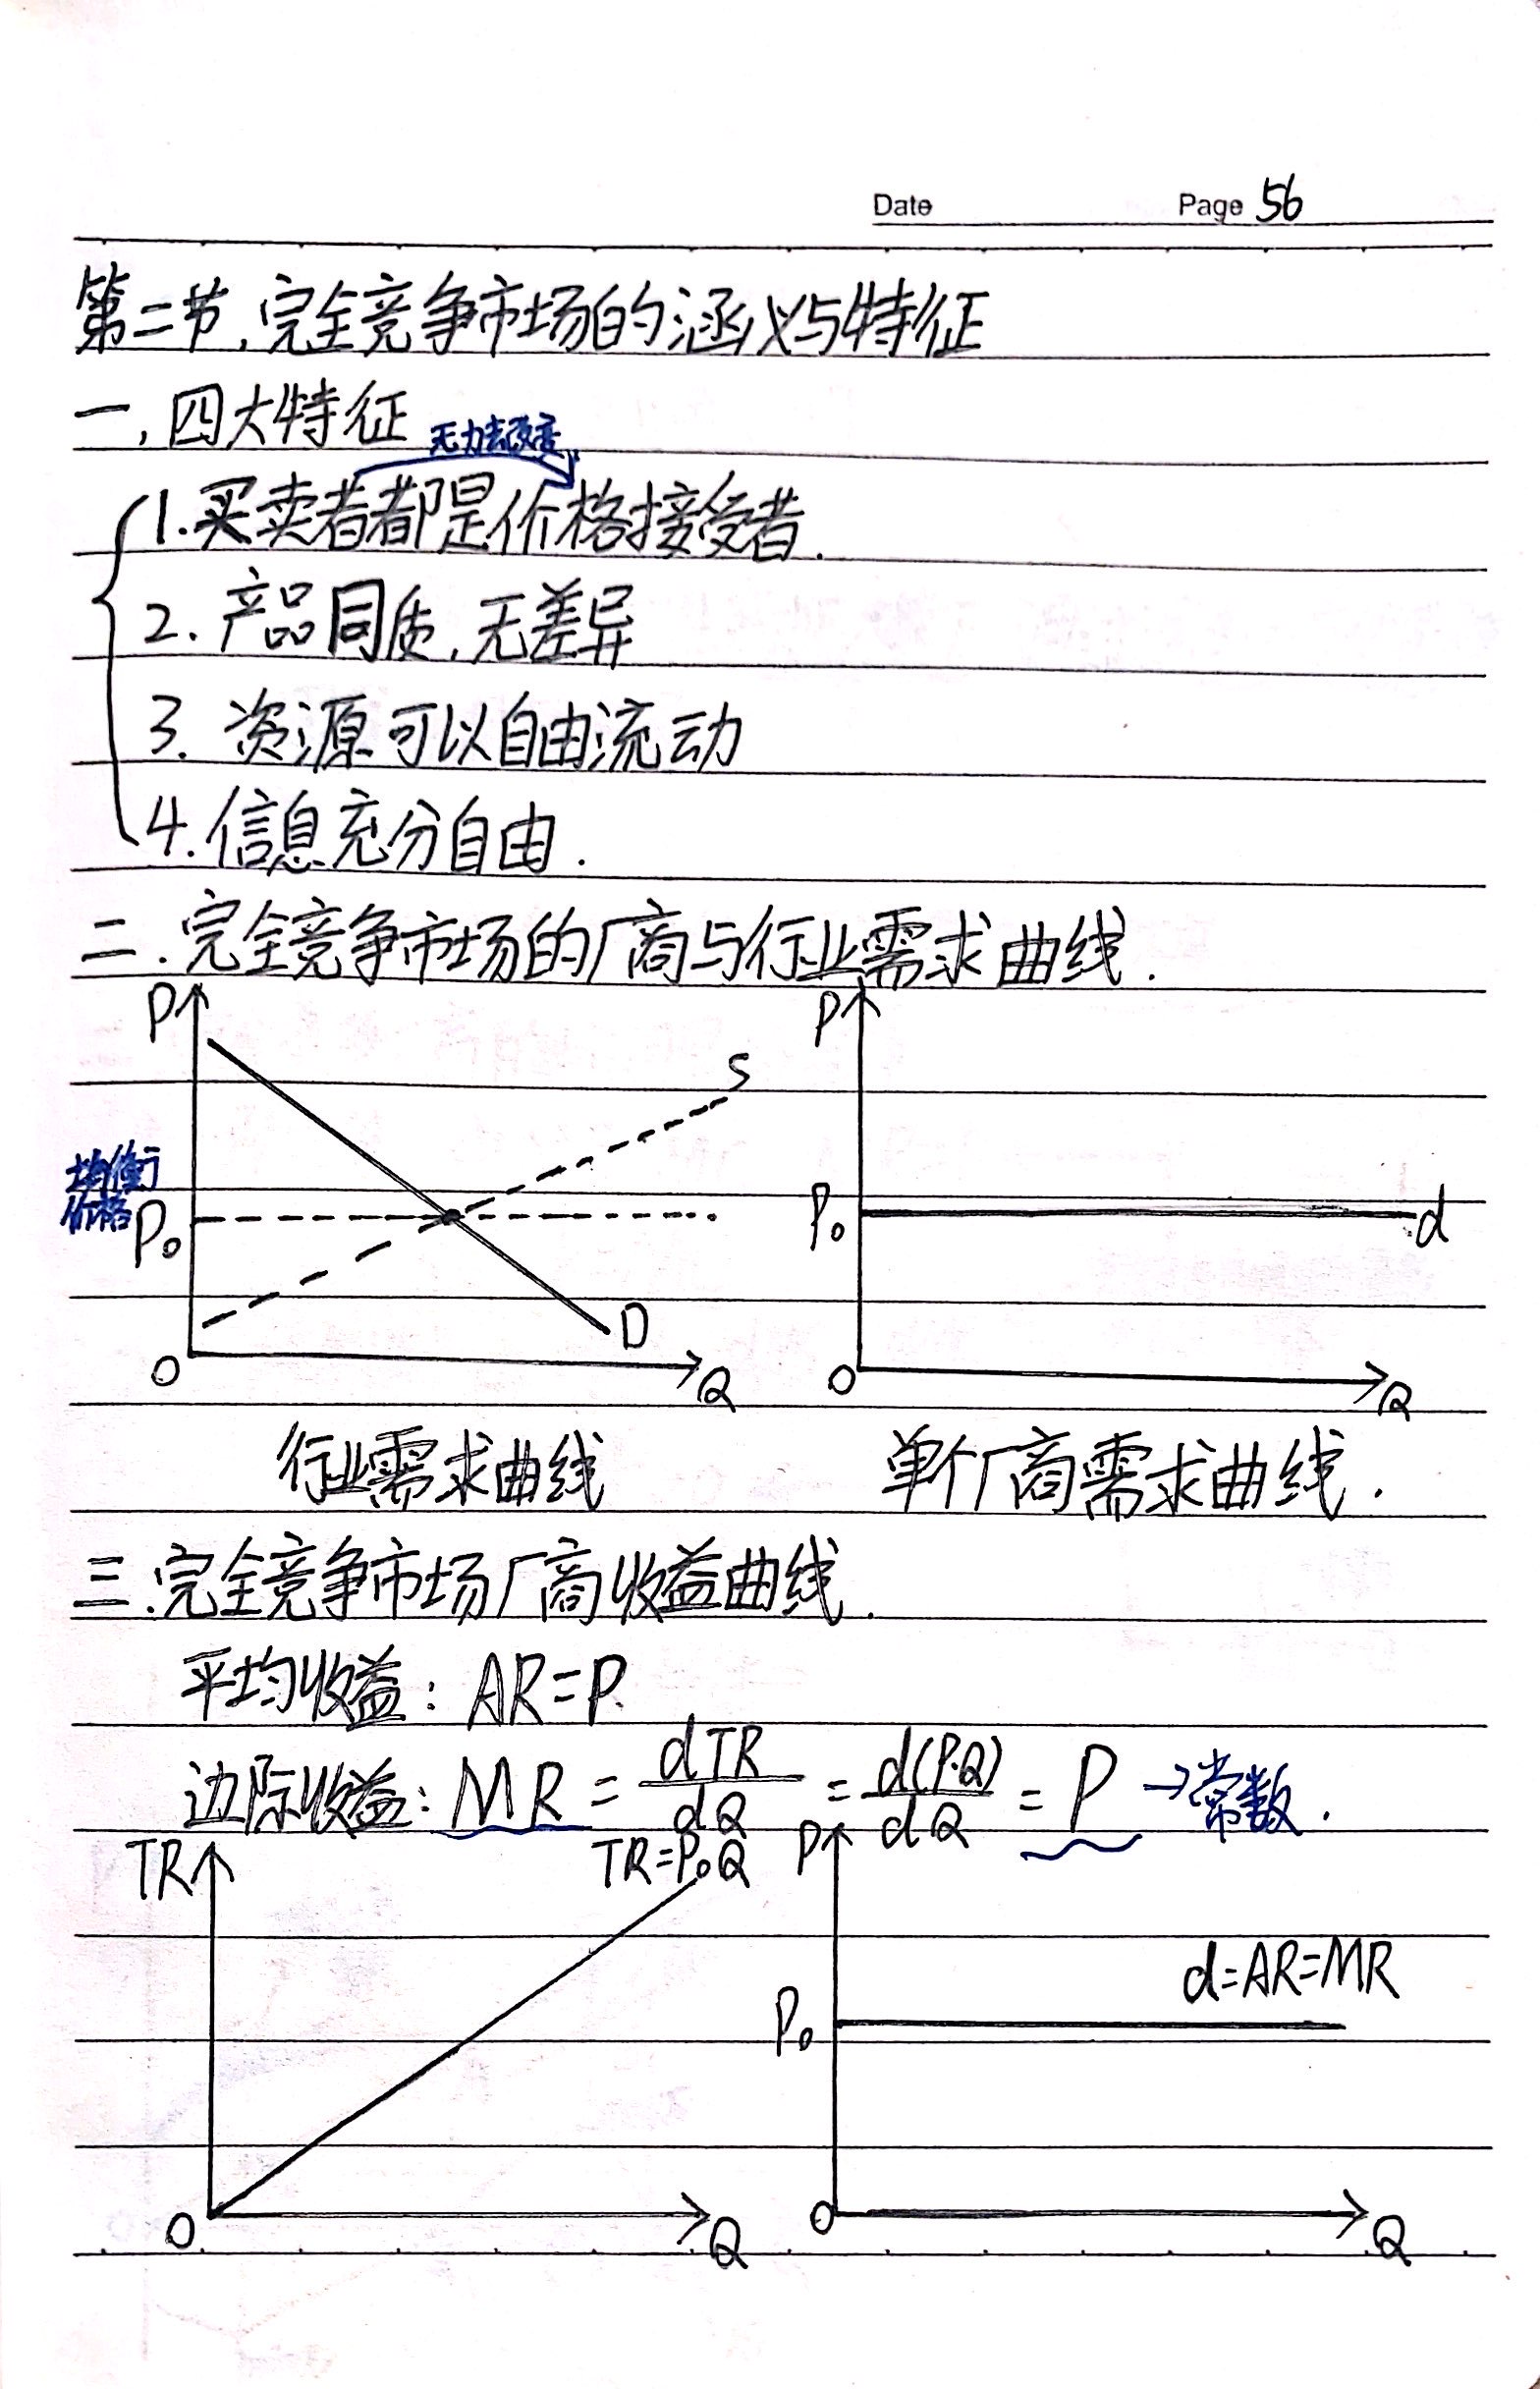 Date Page 56
第二节.完全竞争市场的涵义与特征
一.四大特征
无力去改变
1.买卖者都是价格接受者.
2.产品同质,无差异
3.资源可以自由流动
4.信息充分自由.
二.完全竞争市场的厂商与行业需求曲线.
P P
S
均衡
价格 P₀ P₀ d
D
O Q O Q
行业需求曲线 单个厂商需求曲线.
三.完全竞争市场厂商收益曲线.
平均收益: AR=P.
边际收益: MR = dTR/dQ = d(P·Q)/dQ = P →常数.
TR TR=P₀Q P
d=AR=MR
P₀
O Q O Q